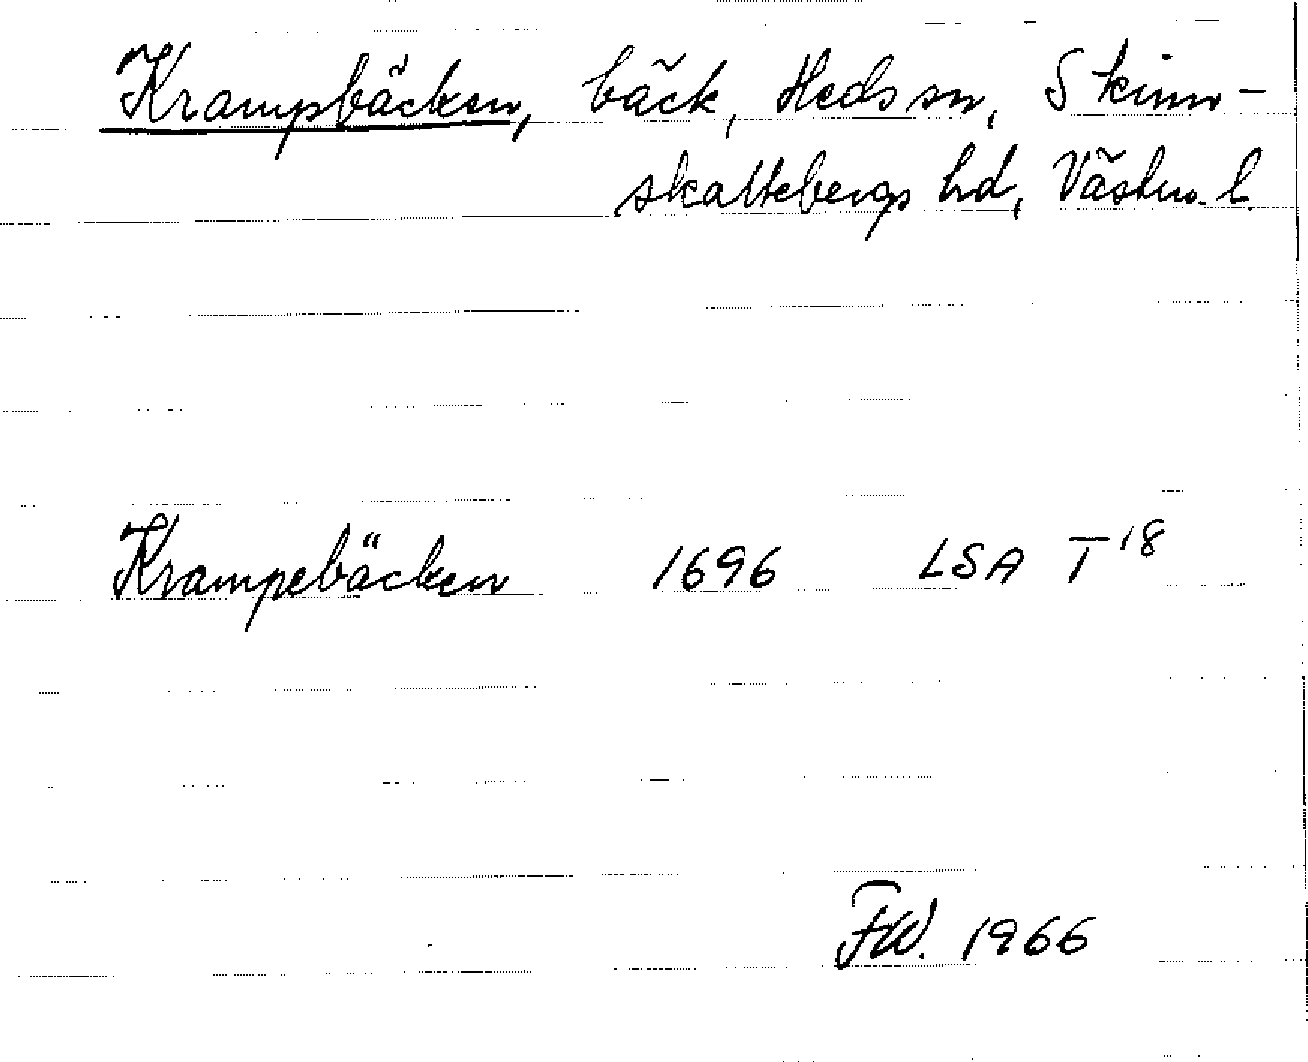 Krampbäcken, bäck, Heds sn, Skinn-
skattebergs hd, Västm. l.
Krampebäcken 1696 LSA T 18
FW. 1966